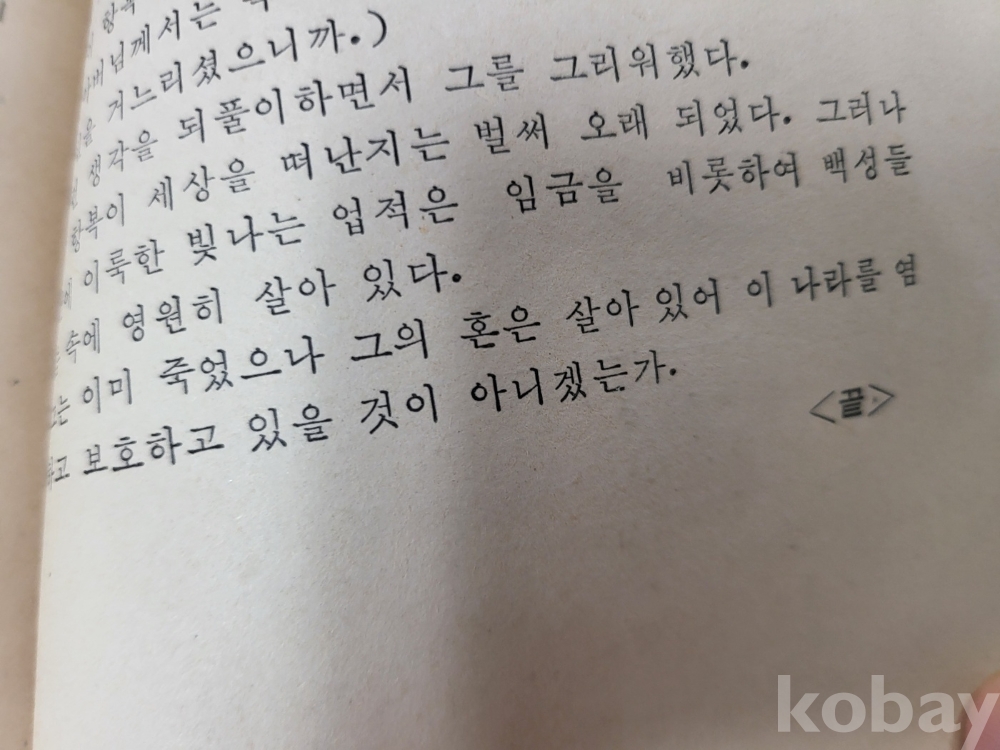 거느리셨으니까.)
생각을 되풀이하면서 그를 그리워했다.
항복이 세상을 떠난지는 벌써 오래 되었다. 그러나
이룩한 빛나는 업적은 임금을 비롯하여 백성들
속에 영원히 살아 있다.
그는 이미 죽었으나 그의 혼은 살아 있어 이 나라를 염
하고 보호하고 있을 것이 아니겠는가.
<끝>
kobay